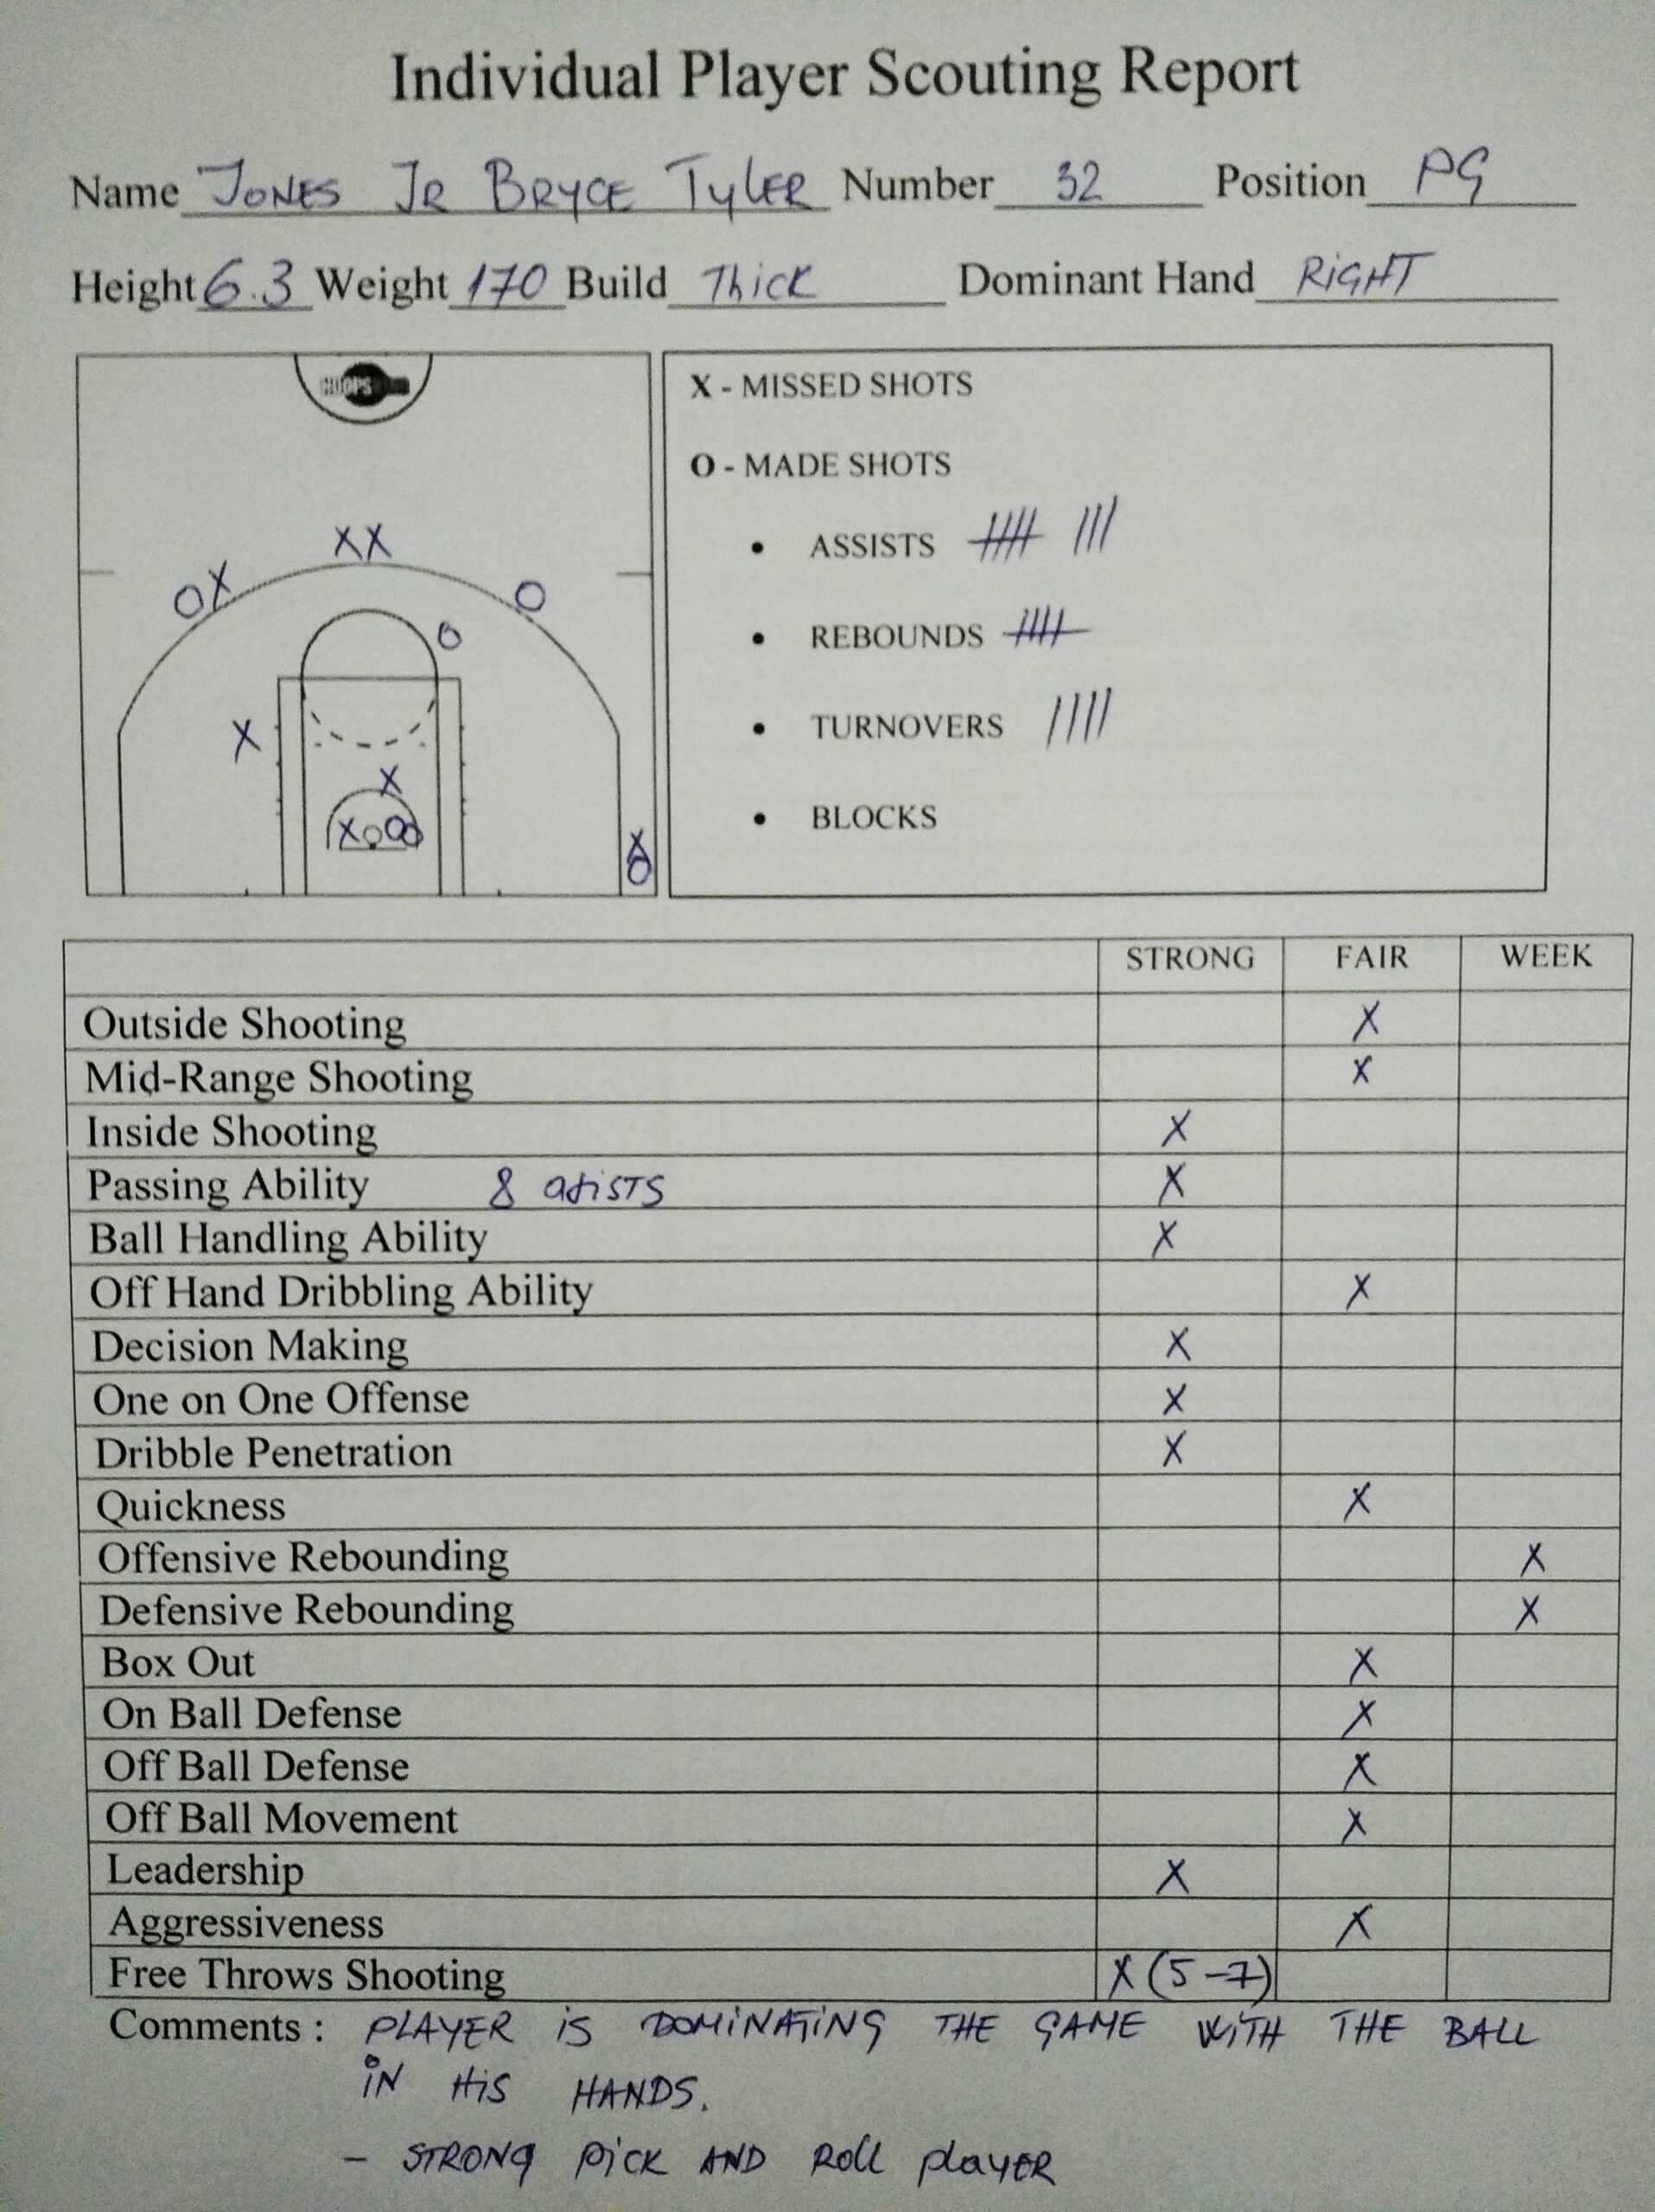 Individual Player Scouting Report
Name JONES JR BRYCE TYLER Number 32 Position PG
Height 6.3 Weight 170 Build Thick Dominant Hand RIGHT
HOOPS
X - MISSED SHOTS
O - MADE SHOTS
• ASSISTS
• REBOUNDS
• TURNOVERS
• BLOCKS
XX
OX
O
O
X
X
X
X
STRONG FAIR WEEK
Outside Shooting X
Mid-Range Shooting X
Inside Shooting X
Passing Ability 8 X
Ball Handling Ability X
Off Hand Dribbling Ability X
Decision Making X
One on One Offense X
Dribble Penetration X
Quickness X
Offensive Rebounding X
Defensive Rebounding X
Box Out X
On Ball Defense X
Off Ball Defense X
Off Ball Movement X
Leadership X
Aggressiveness X
Free Throws Shooting X (5-7)
Comments : PLAYER iS DOMiNATiNG THE GAME WiTH THE BALL
iN HiS HANDS.
- STRONG PiCK AND Roll playER